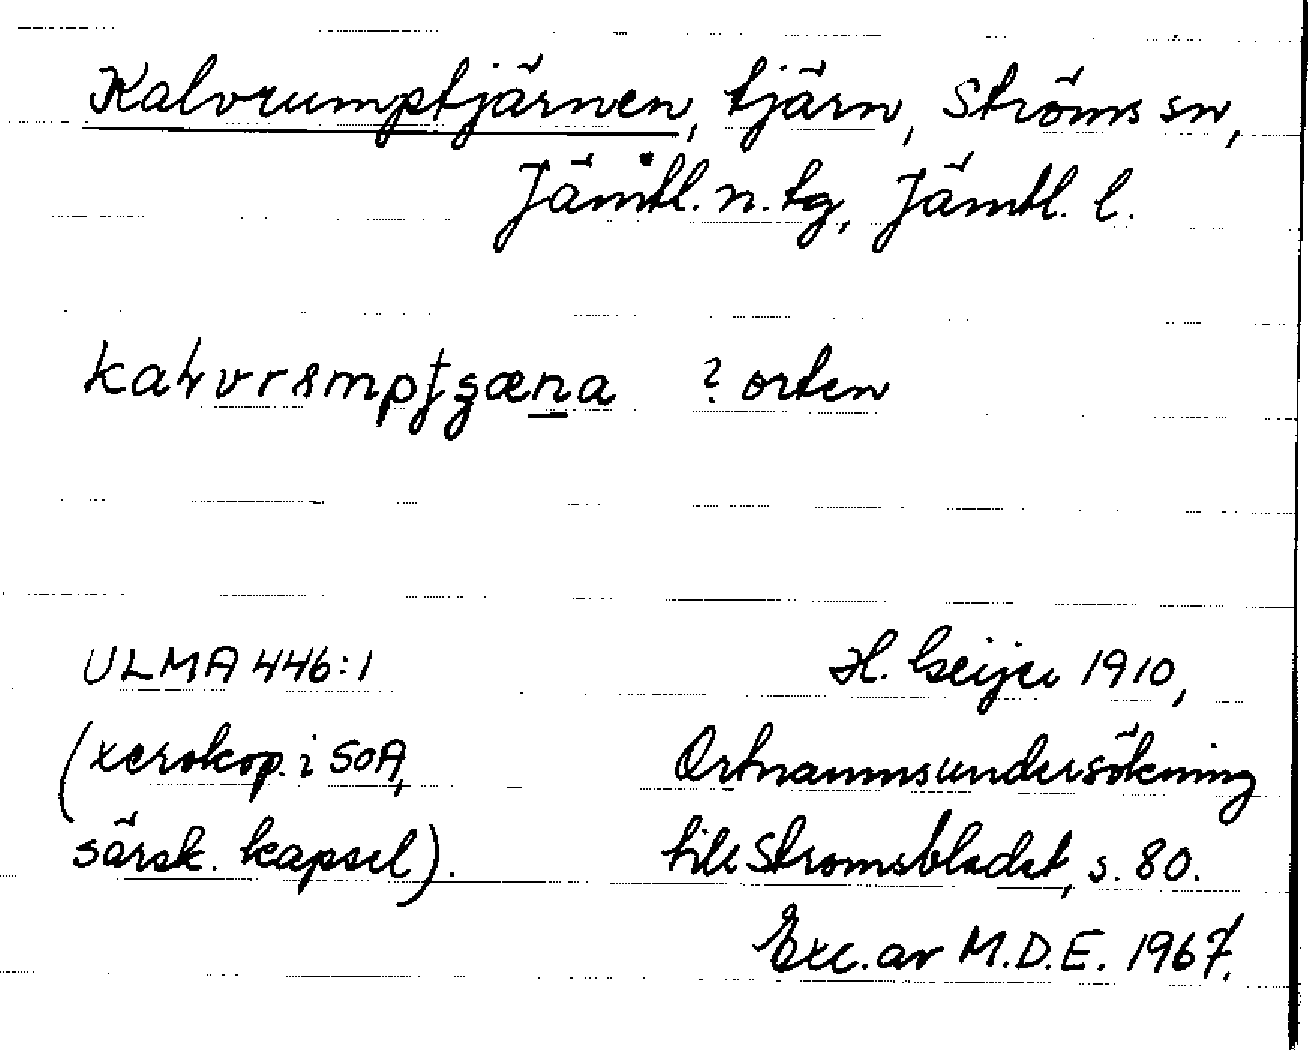 Kalvrumptjärnen, tjärn, Ströms sn,
Jämtl. n. tg, Jämtl. l.
? orten
ULMA 446:1
H. Geijer 1910,
(xerokop. i SOA,
Ortnamnsundersökning
särsk. kapsel).
till Strömsbladet, s. 80.
Exc. av M.D.E. 1967.